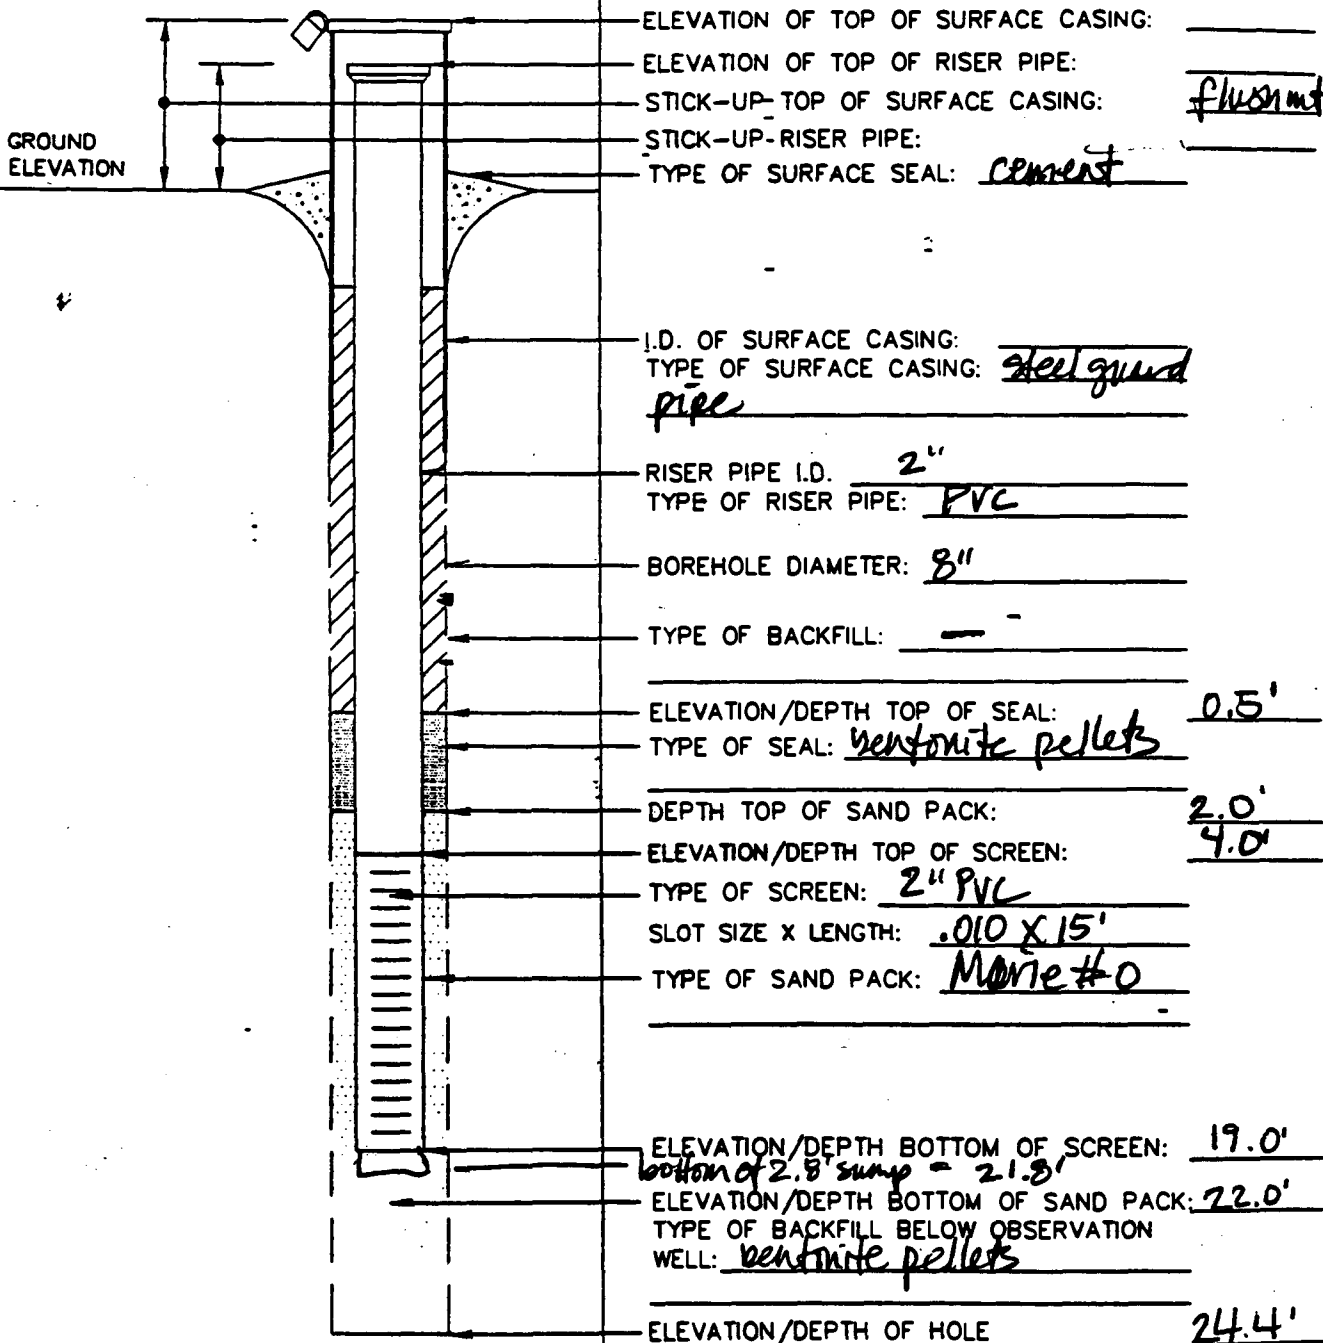 ELEVATION OF TOP OF SURFACE CASING:
ELEVATION OF TOP OF RISER PIPE:
STICK-UP-TOP OF SURFACE CASING: flush mt
GROUND
ELEVATION
STICK-UP-RISER PIPE:
TYPE OF SURFACE SEAL: cement
I.D. OF SURFACE CASING:
TYPE OF SURFACE CASING: steel guard
pipe
RISER PIPE I.D. 2"
TYPE OF RISER PIPE: PVC
BOREHOLE DIAMETER: 8"
TYPE OF BACKFILL: —
ELEVATION/DEPTH TOP OF SEAL: 0.5'
TYPE OF SEAL: bentonite pellets
DEPTH TOP OF SAND PACK: 2.0'
ELEVATION/DEPTH TOP OF SCREEN: 4.0'
TYPE OF SCREEN: 2" PVC
SLOT SIZE X LENGTH: .010 X 15'
TYPE OF SAND PACK: Morie #0
ELEVATION/DEPTH BOTTOM OF SCREEN: 19.0'
bottom of 2.8' sump = 21.8'
ELEVATION/DEPTH BOTTOM OF SAND PACK: 22.0'
TYPE OF BACKFILL BELOW OBSERVATION
WELL: bentonite pellets
ELEVATION/DEPTH OF HOLE 24.4'